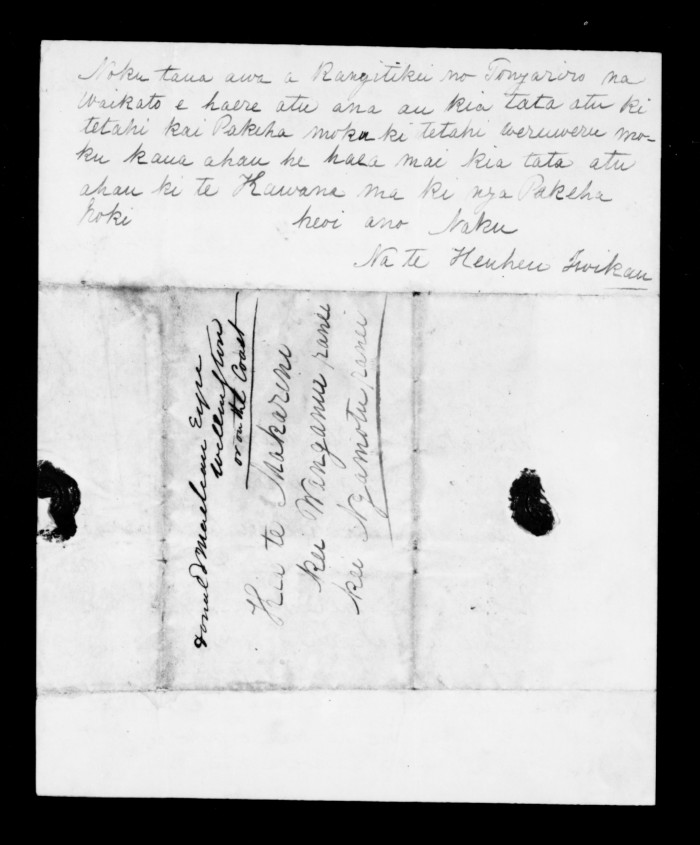 Noku taua awa a Rangitikei no Tongariro na
Waikato e haere atu ana au kia tata atu ki
tetahi kai Pakeha moku ki tetahi weruweru mo-
ku kaua ahau he haea mai kia tata atu
ahau ki te Kawana ma ki nga Pakeha
hoki heoi ano Naku
Na te Heuheu Iwikau
Donald Maclean Esqre
Wellington
or on the Coast
Kia te Makarene
kei Wanganui ranei
kei Ngamotu ranei